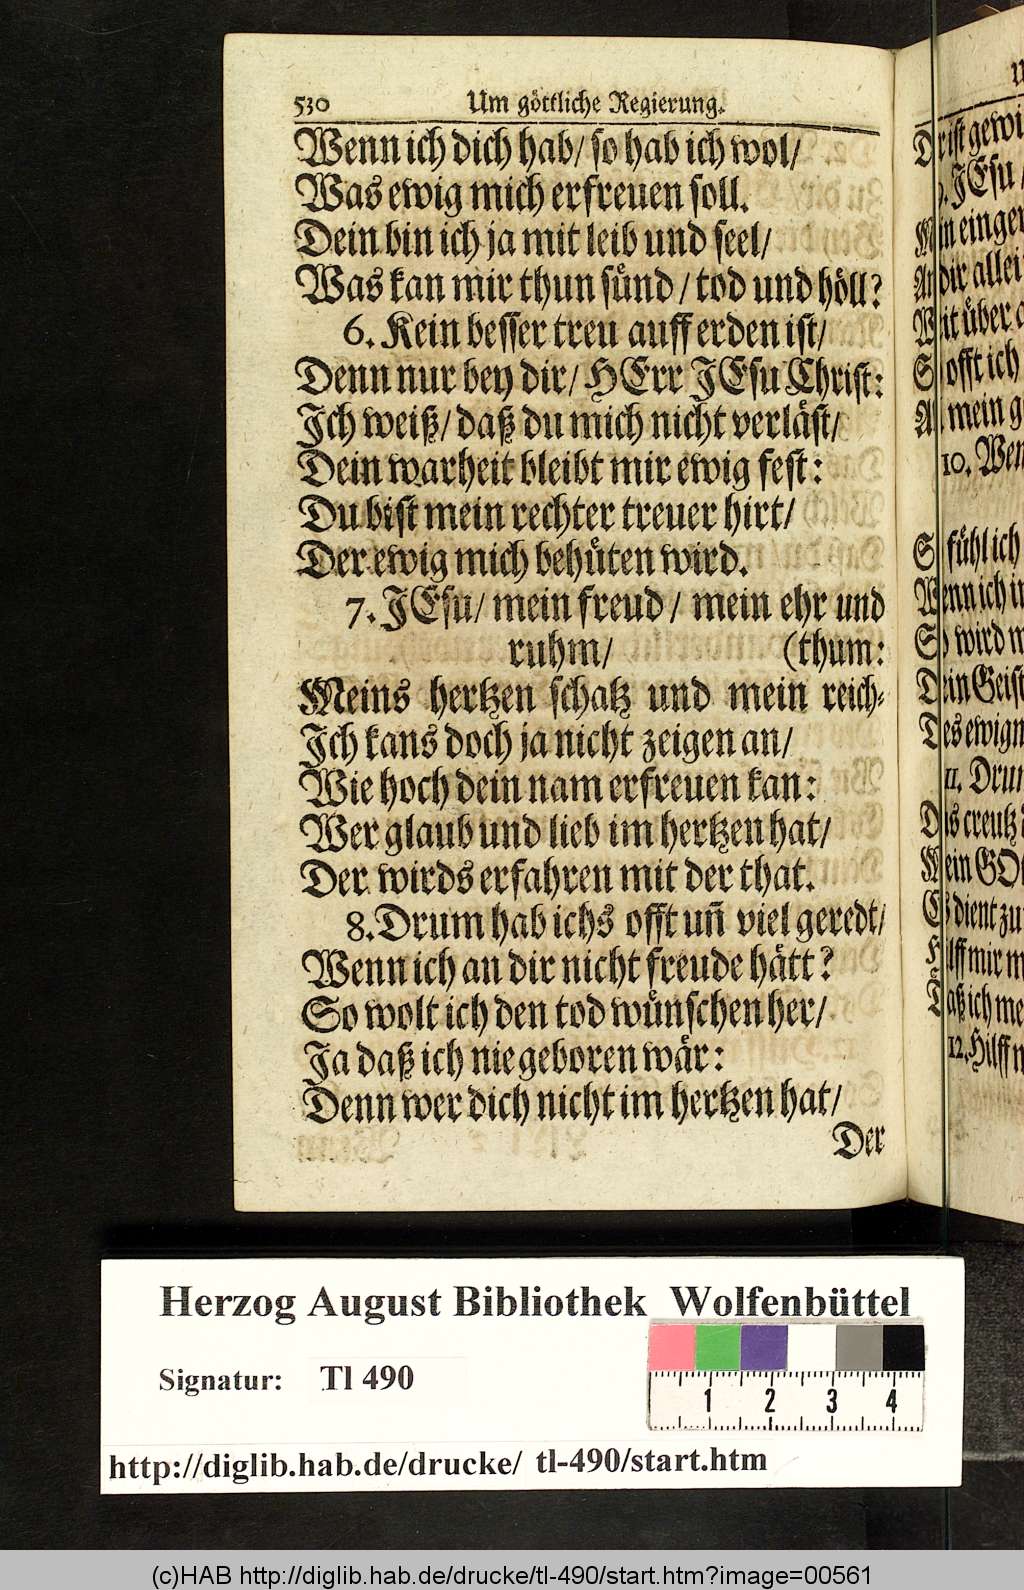 530 Um göttliche Regierung.
Wenn ich dich hab/ so hab ich wol/
Was ewig mich erfreuen soll.
Dein bin ich ja mit leib und seel/
Was kan mir thun sünd/ tod und höll?
6. Kein besser treu auff erden ist/
Denn nur bey dir/ HErr JEsu Christ:
Ich weiß/ daß du mich nicht verläst/
Dein warheit bleibt mir ewig fest:
Du bist mein rechter treuer hirt/
Der ewig mich behüten wird.
7. JEsu/ mein freud/ mein ehr und
ruhm/ (thum:
Meins hertzen schatz und mein reich-
Ich kans doch ja nicht zeigen an/
Wie hoch dein nam erfreuen kan:
Wer glaub und lieb im hertzen hat/
Der wirds erfahren mit der that.
8. Drum hab ichs offt uñ viel geredt/
Wenn ich an dir nicht freude hätt?
So wolt ich den tod wünschen her/
Ja daß ich nie geboren wär:
Denn wer dich nicht im hertzen hat/
Der
ist
JEsu
dir
über
offt ich
mein
10.
fühl ich
ich
wird
11.
creutz
dient
mir
ich
12. Hilff
Herzog August Bibliothek Wolfenbüttel
Signatur: Tl 490
1 2 3 4
http://diglib.hab.de/drucke/ tl-490/start.htm
(c)HAB http://diglib.hab.de/drucke/tl-490/start.htm?image=00561